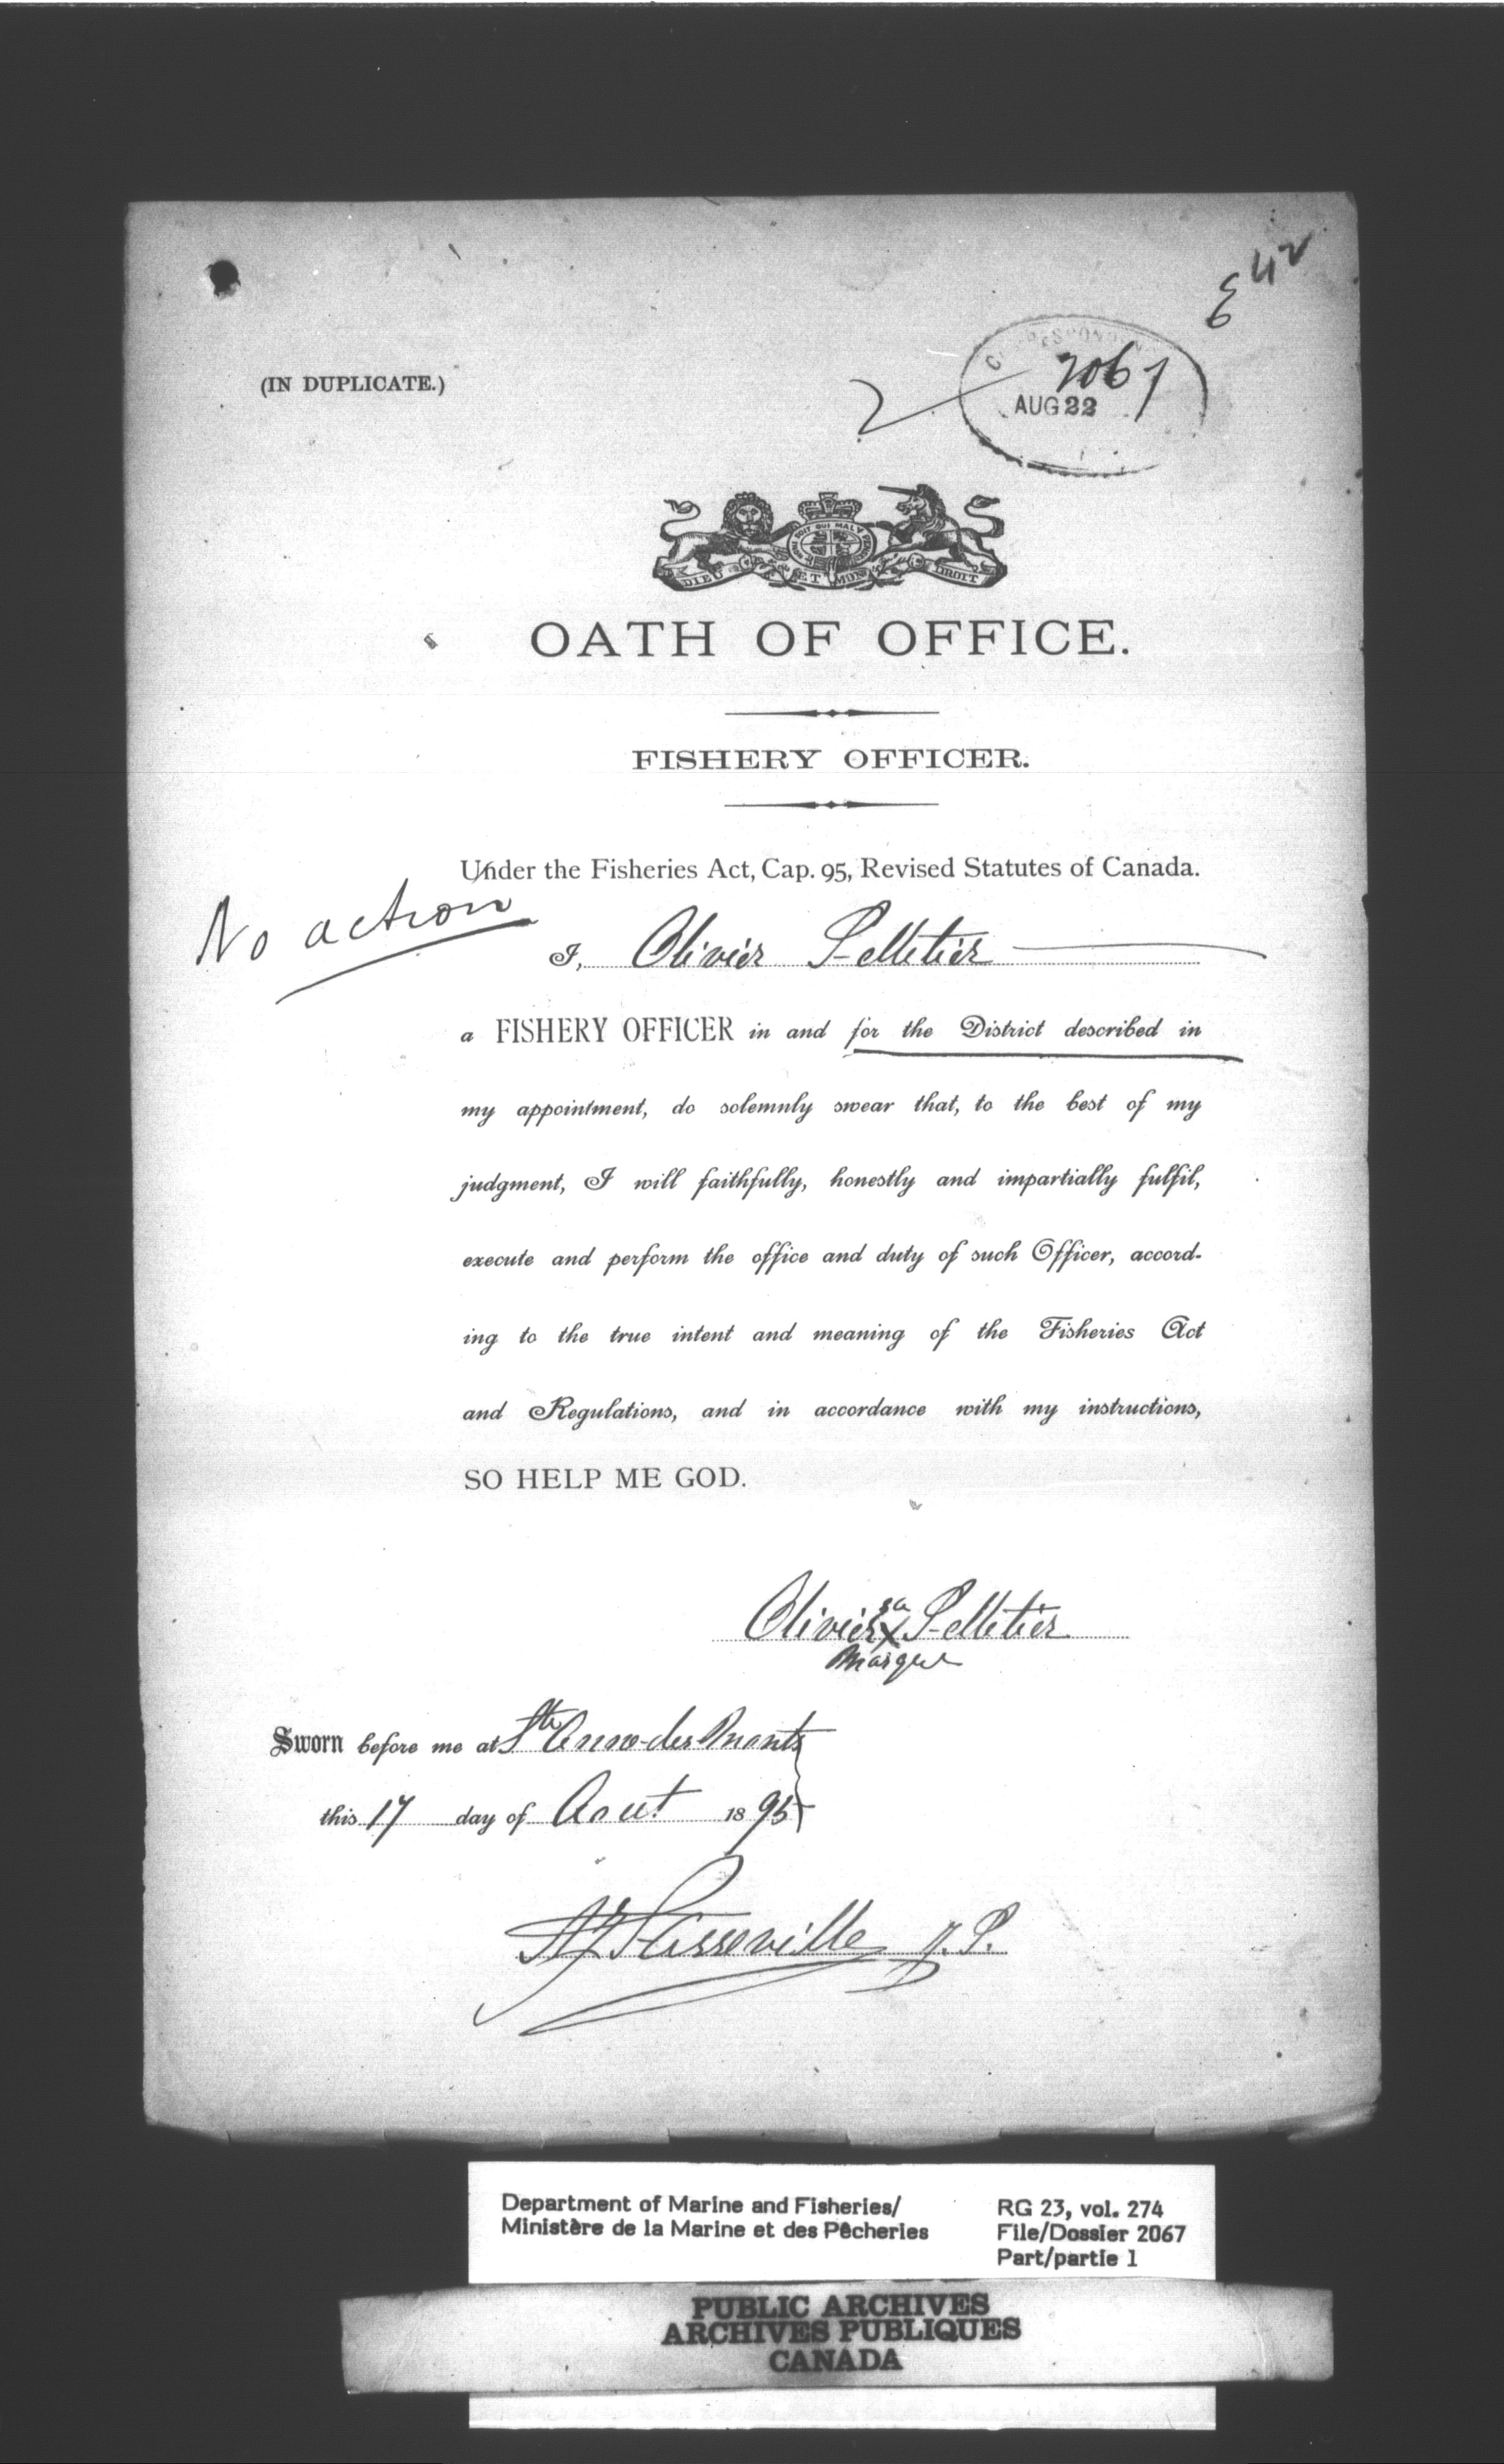 E42
(IN DUPLICATE.)
2
CORRESPONDEN
2067
AUG 22
HONI SOIT QUI MAL Y PENSE
DIEU ET MON DROIT
OATH OF OFFICE.
FISHERY OFFICER.
Under the Fisheries Act, Cap. 95, Revised Statutes of Canada.
No action
I, Olivier Pelletier
a FISHERY OFFICER in and for the District described in
my appointment, do solemnly swear that, to the best of my
judgment, I will faithfully, honestly and impartially fulfil,
execute and perform the office and duty of such Officer, accord-
ing to the true intent and meaning of the Fisheries Act
and Regulations, and in accordance with my instructions,
SO HELP ME GOD.
sa
Olivier X Pelletier
marque
Sworn before me at Ste Anne des Monts
this 17 day of Aout 1895
J. P.
Department of Marine and Fisheries/
Ministère de la Marine et des Pêcheries
RG 23, vol. 274
File/Dossier 2067
Part/partie 1
PUBLIC ARCHIVES
ARCHIVES PUBLIQUES
CANADA